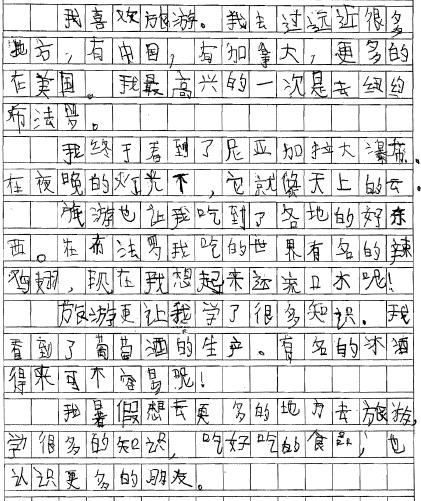 我喜欢旅游。我去过远近很多
地方，有中国，有加拿大，更多的
在美国。我最高兴的一次是去纽约
布法罗。
我终于看到了尼亚加拉大瀑布。
在夜晚的灯光下，它就像天上的云。
旅游也让我吃到了各地的好东
西。在布法罗我吃的世界有名的辣
鸡翅，现在我想起来还流口水呢！
旅游更让我学了很多知识。我
看到了葡萄酒的生产。有名的冰酒
得来可不容易呢！
我暑假想去更多的地方去旅游，
学很多的知识，吃好吃的食品，也
认识更多的朋友。